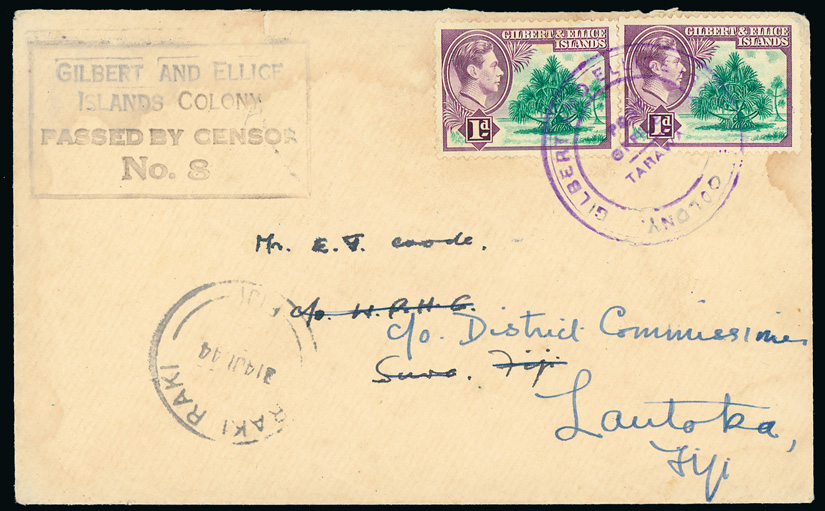 GILBERT AND ELLICE
ISLANDS COLONY
PASSED BY CENSOR
No. 8
GILBERT & ELLICE
ISLANDS
1d
GILBERT & ELLICE
ISLANDS
1d
GILBERT
COLONY.
TARAWA
Mr. E. T. Coode.
c/o. W.P.H.C.
c/o. District Commissioner
Suva. Fiji
Lautoka,
Fiji
RAKI RAKI
FIJI